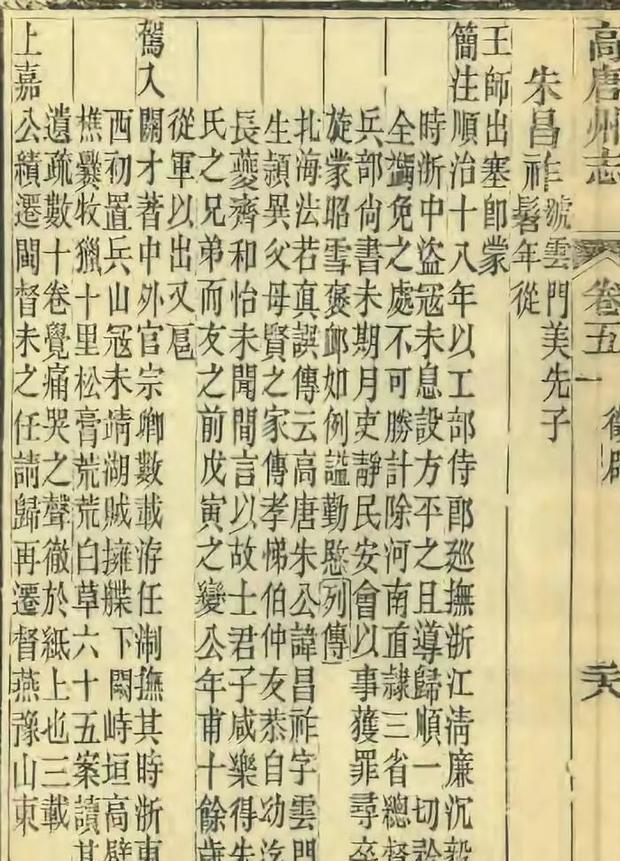 高唐州志 卷五一 徵辟
朱昌祚 號雲門美先子
髫年從
王師出塞卽蒙
簡注順治十八年以工部侍郎廵撫浙江淸廉沉毅
時浙中盜冦未息設方平之且導歸順一切
全蠲免之處不可勝計除河南直隷三省總督
兵部尚書未期月吏靜民安會以事獲罪尋卒
旋蒙昭雪褒䘏如例謚勤愍列傳
北海法若真誤傳云高唐朱公諱昌祚字雲門
生頴異父母賢之家傳孝悌伯仲友恭自幼迄
長夔齊和怡未聞間言以故士君子咸樂得朱
氏之兄弟而友之前戊寅之變公年甫十餘歲
從軍以出又扈
駕入關才著中外官宗卿數載游任淛撫其時浙東
西初置兵山冦未靖湖賊擁艓下闗峙垣高壁
樵爨牧獵十里松膏荒荒白草六十五案讀其
遺疏數十卷覺痛哭之聲徹於紙上也三載
上嘉公績遷閩督未之任請歸再遷督燕豫山東